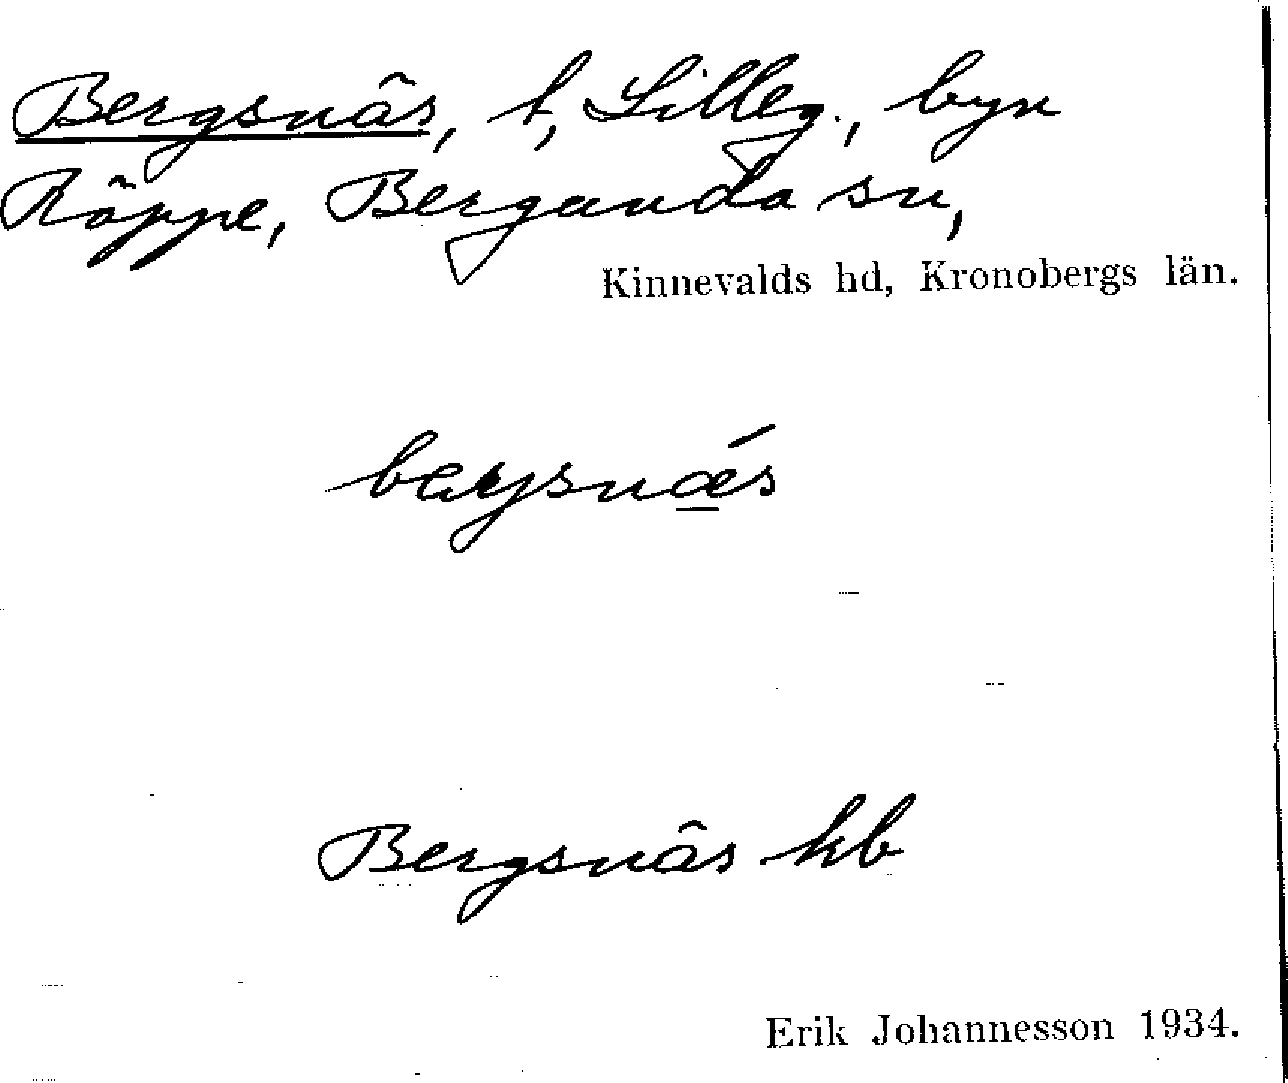 Bergsnäs, t, Lilleg., byn
Räppe, Bergunda sn,
Kinnevalds hd, Kronobergs län.
bærjsnǽ̱s
Bergsnäs kb
Erik Johannesson 1934.